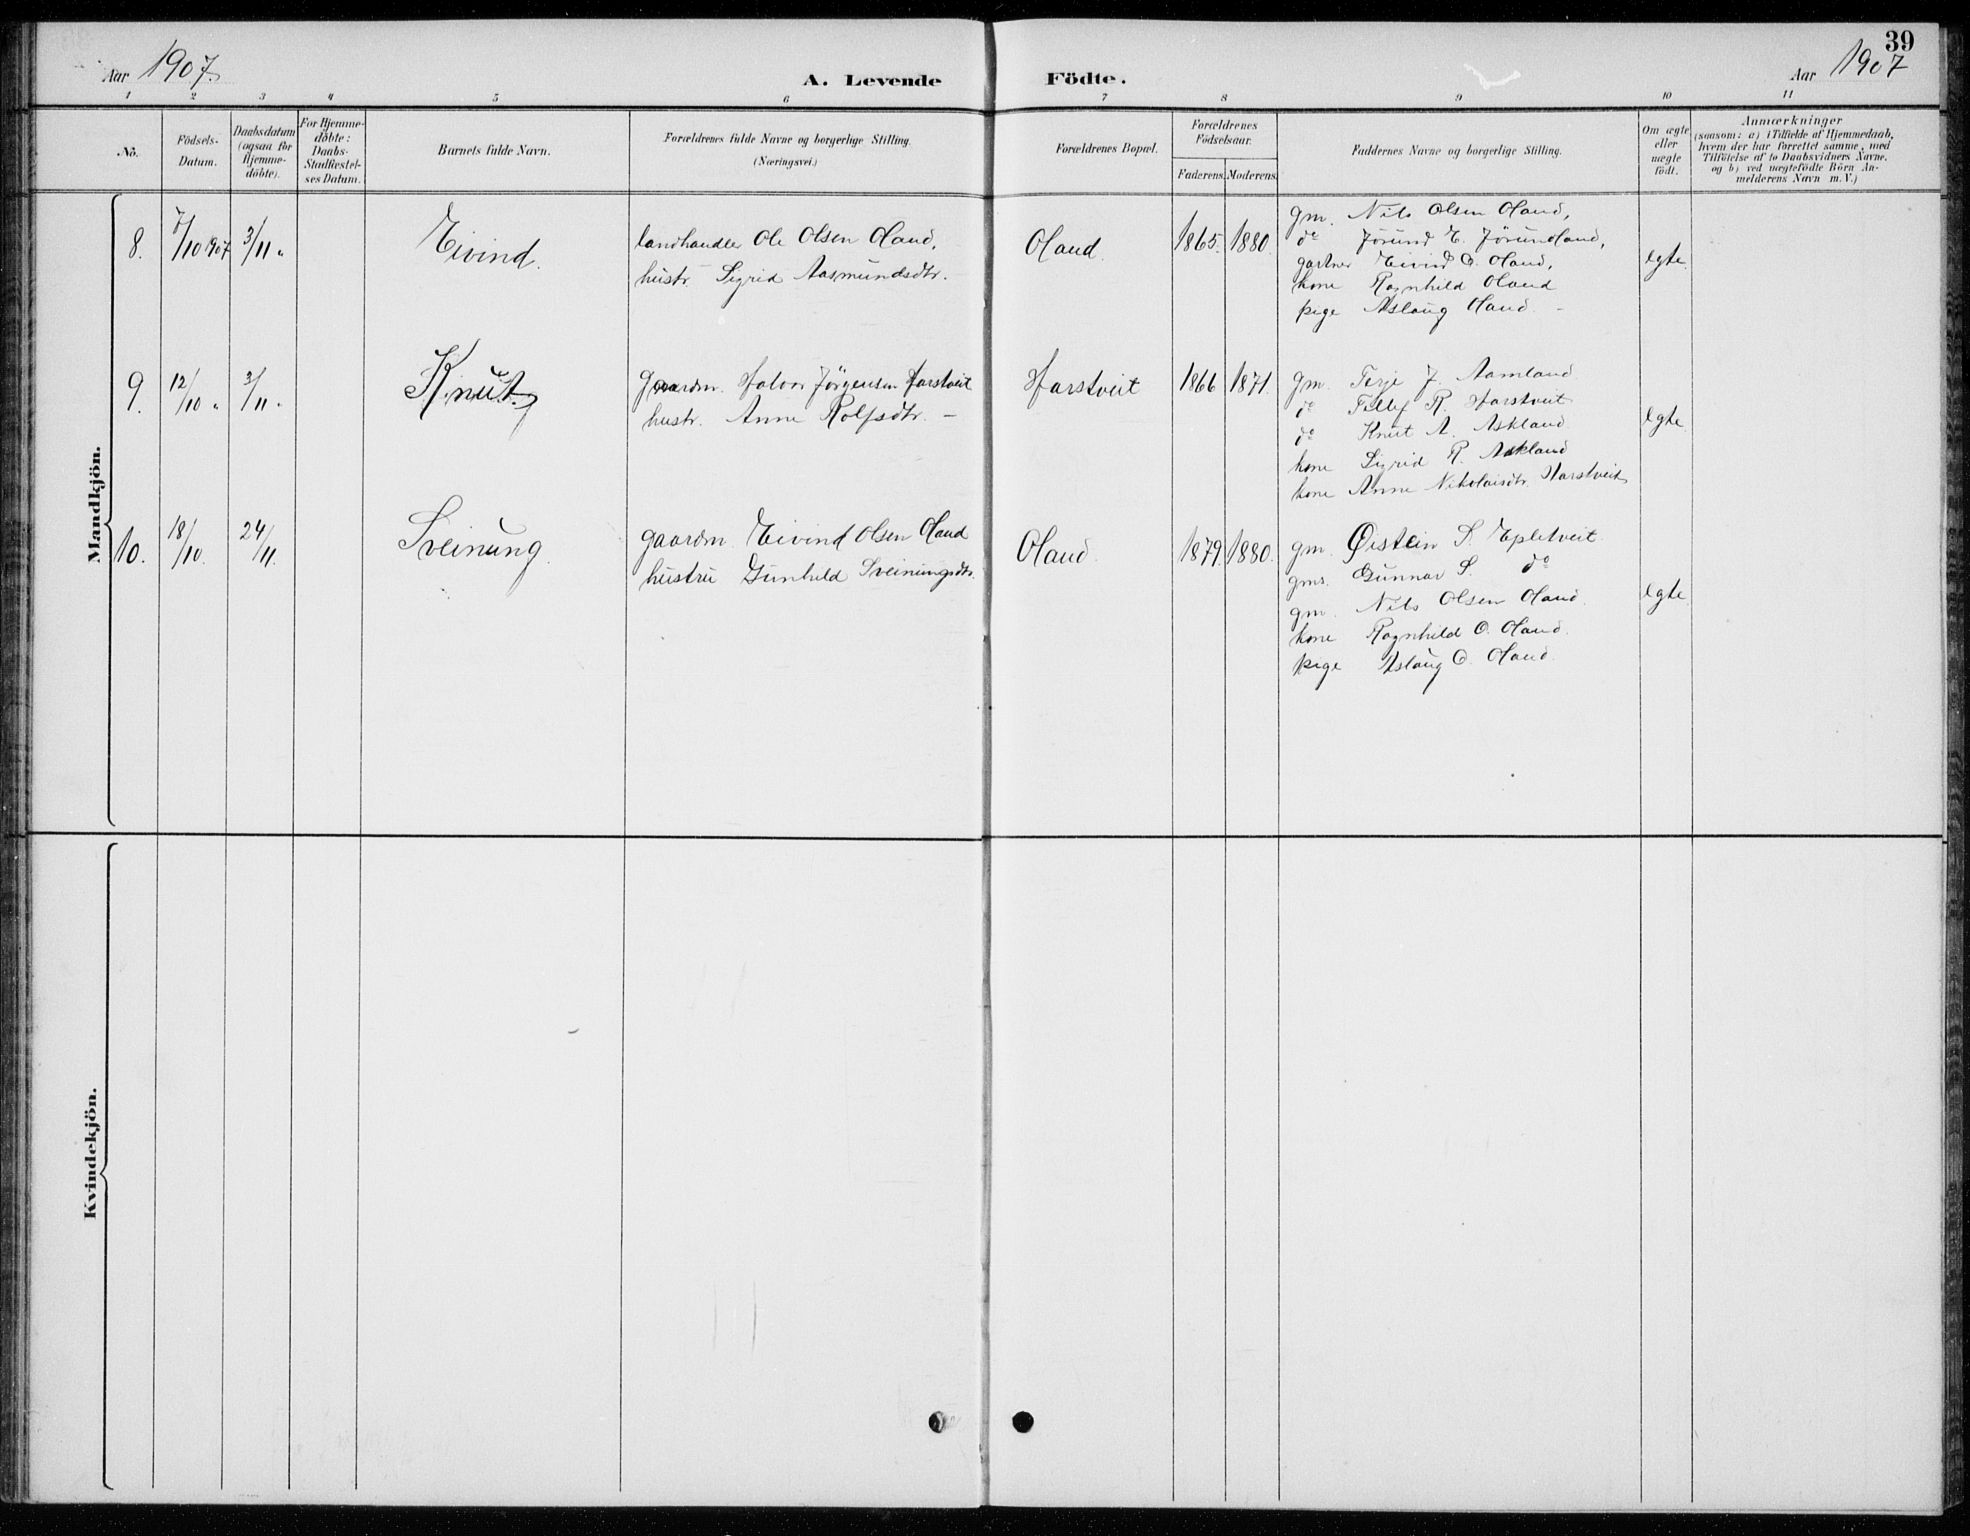 39
Aar 1907.
A. Levende Födte.
Aar 1907
1 2 3 4 5 6 7 8 9 10 11
No.
Födsels-
Datum.
Daabsdatum
(ogsaa for
Hjemme-
döbte).
For Hjemme-
döbte:
Daabs-
Stadfæstel-
ses Datum.
Barnets fulde Navn.
Forældrenes fulde Navne og borgerlige Stilling.
(Næringsvei.)
Forældrenes Bopæl.
Forældrenes
Födselsaar.
Faderens. Moderens.
Faddernes Navne og borgerlige Stilling.
Om ægte
eller
uægte
födt.
Anmærkninger
(saasom: a) i Tilfælde af Hjemmedaab,
hvem der har forrettet samme, med
Tilföielse af to Daabsvidners Navne.
og b) ved uægtefödte Börn An-
melderens Navn m. V.)
Mandkjön.
8. 7/10 1907 3/11 "
Eivind.
landhandler Ole Olsen Oland,
hustr. Sigrid Aasmundsdtr. -
Oland.
1865. 1880.
gm. Nils Olsen Oland,
do Jörund E. Jörundland,
gartner Eivind O. Oland,
kone Ragnhild Oland
pige Aslaug Oland -
egte.
9. 12/10 " 3/11 "
Knut
gaardm. Halvor Jörgensen Harstveit
hustr. Anne Rolfsdtr. -
Harstveit
1866 1871.
gm. Terje J. Aamland
do Tellef R. Harstveit
do Knut A. Askland
kone Sigrid R. Askland
kone Anne Nikolaisdtr. Harstveit
egte.
10. 18/10. 24/11.
Sveinung.
gaardm. Eivind Olsen Oland
hustru Gunhild Sveinungsdtr.
Oland.
1879. 1880.
gm. Øistein S. Epletveit.
gms. Gunnar S. do
gm. Nils Olsen Oland.
kone Ragnhild O. Oland.
pige Aslaug O. Oland.
egte.
Kvindekjön.